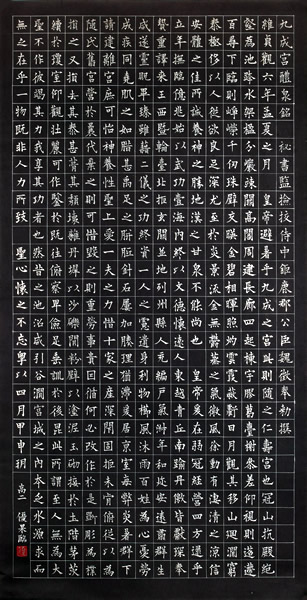 九成宮醴泉銘 秘書監撿挍侍中鉅鹿郡公臣魏徵奉勅撰
維貞觀六年孟夏之月 皇帝避暑乎九成之宮此則隨之仁壽宮也冠山抗殿絕
壑為池跨水架楹分巖竦闕高閣周建長廊四起棟宇膠葛臺榭參差仰視則迢遰
百尋下臨則崢嶸千仞珠璧交暎金碧相暉照灼雲霞蔽虧日月觀其移山迴澗窮
泰極侈以人從欲良足深尤至於炎景流金無鬱蒸之氣微風徐動有淒清之涼信
安體之佳所誠養神之勝地漢之甘泉不能尚也 皇帝爰在弱冠經營四方逮乎
立年撫臨億兆始以武功壹海內終以文德懷遠人東越青丘南踰丹徼皆獻琛奉
贄重譯來王西暨輪臺北拒玄闕並地列州縣人充編戶氣淑年和邇安遠肅群生
咸遂靈貺畢臻雖藉二儀之功終資一人之慮遺身利物櫛風沐雨百姓為心憂勞
成疾同堯肌之如腊甚禹足之胼胝針石屢加腠理猶滯爰居京室每弊炎暑群下
請建離宮庶可怡神養性聖上愛一夫之力惜十家之產深閉固拒未肯俯從以為
隨氏舊宮營於曩代棄之則可惜毀之則重勞事貴因循何必改作於是斲彫為樸
損之又損去其泰甚葺其頹壞雜丹墀以沙礫間粉壁以塗泥玉砌接於土階茅茨
續於瓊室仰觀壯麗可作鑒於既往俯察卑儉足垂訓於後昆此所謂至人無為大
聖不作彼竭其力我享其功者也然昔之池沼咸引谷澗宮城之內本乏水源求而
無之在乎一物既非人力所致 聖心懷之不忘粵以四月甲申朔 高二 優